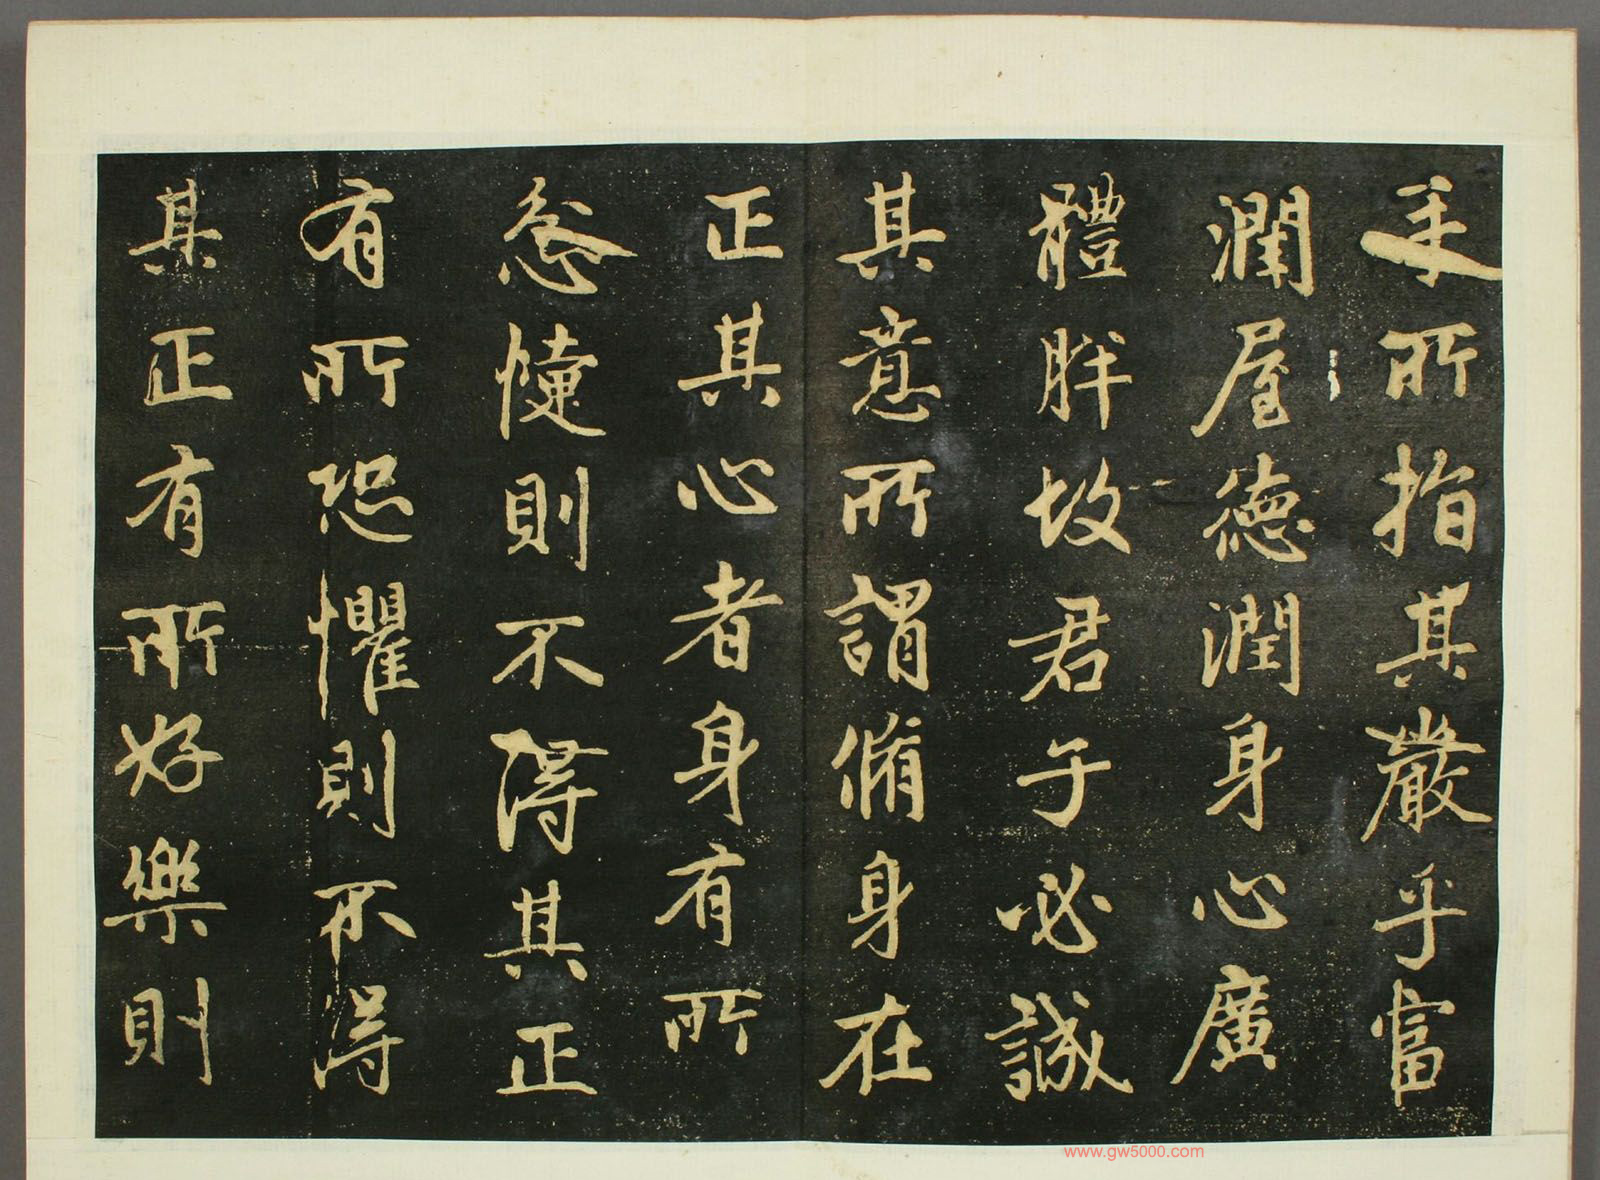 手所指其嚴乎富
潤屋德潤身心廣
體胖故君子必誠
其意所謂脩身在
正其心者身有所
忿懥則不得其正
有所恐懼則不得
其正有所好樂則
www.gw5000.com